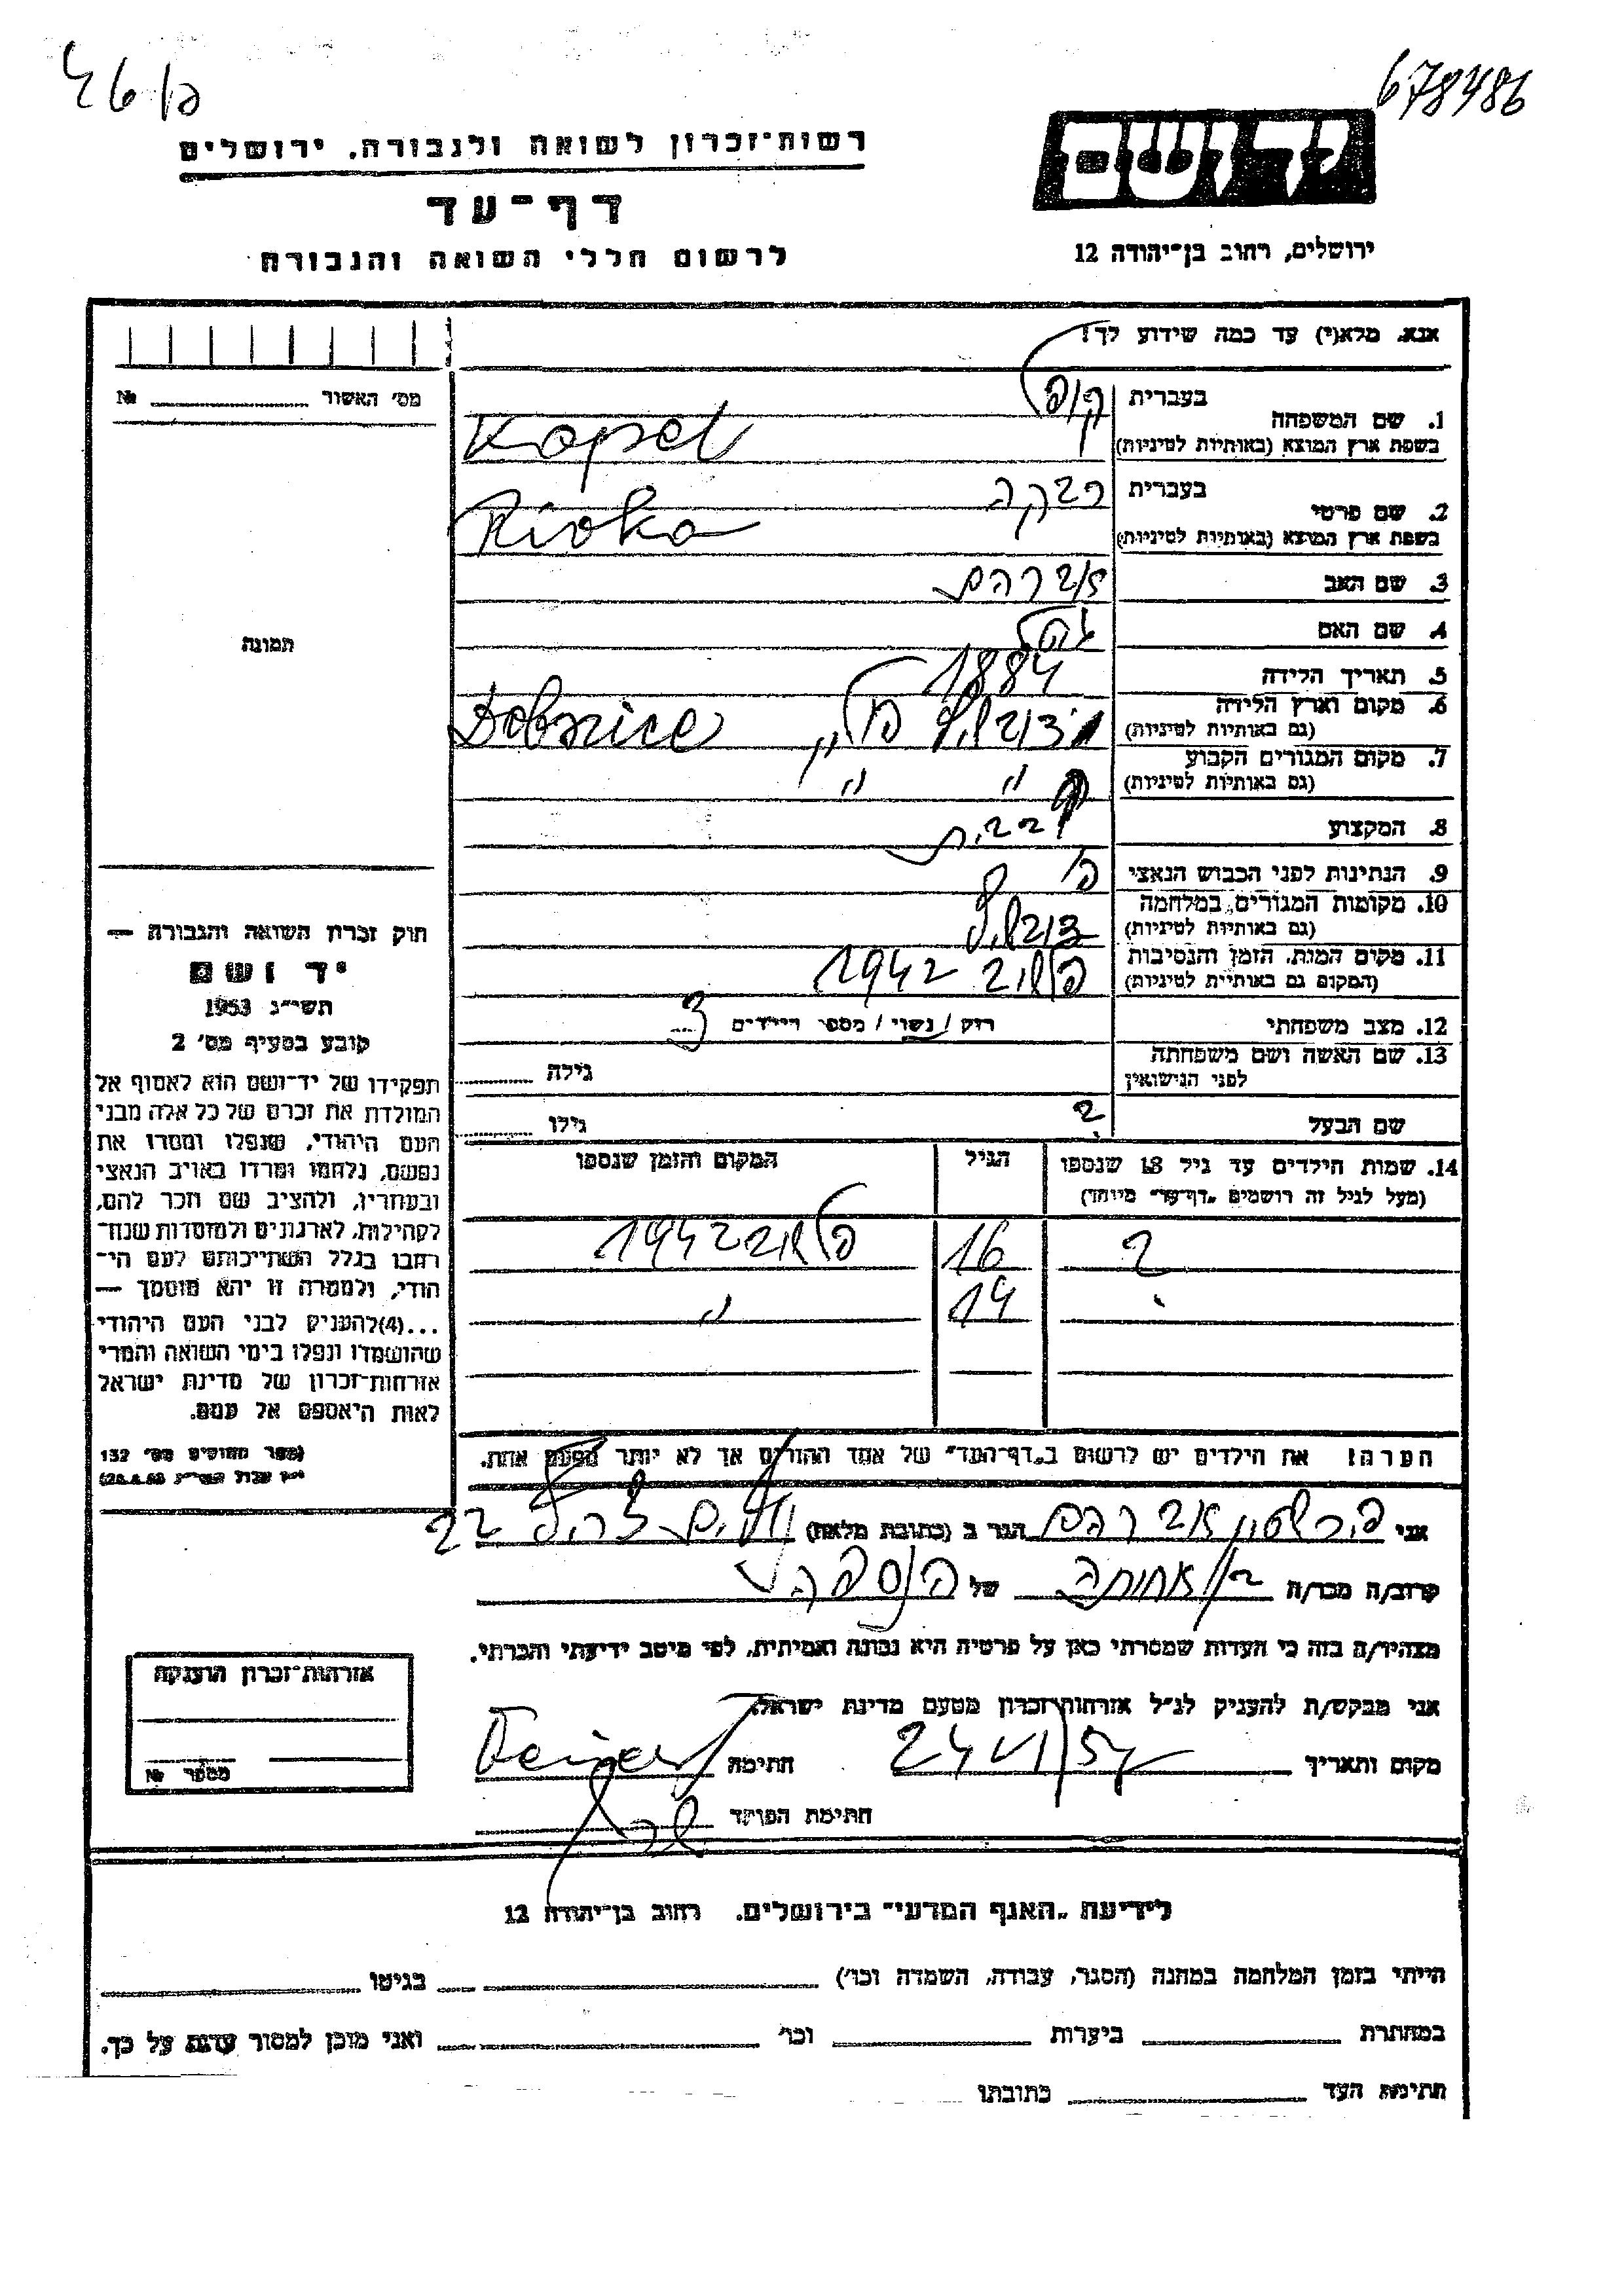 678486
רשות־זכרון לשואה ולגבורה. ירושלים
יד ושם
דף־עד
לרשום חללי השואה והגבורה
ירושלים, רחוב בן־יהודה 12
אנא, מלא(י) עד כמה שידוע לך!
מס׳ האשור № 
1. שם המשפחה
בעברית קופל
בשפת ארץ המוצא (באותיות לטיניות) Kopel
2. שם פרטי
בעברית רבקה
בשפת ארץ המוצא (באותיות לטיניות) Rivka
3. שם האב אברהם
4. שם האם
5. תאריך הלידה 1884
6. מקום וארץ הלידה פולין
(גם באותיות לטיניות)
7. מקום המגורים הקבוע " "
(גם באותיות לטיניות)
8. המקצוע
9. הנתינות לפני הכבוש הנאצי
10. מקומות המגורים במלחמה
(גם באותיות לטיניות)
11. מקום המות, הזמן והנסיבות 1942
(המקום גם באותיות לטיניות)
12. מצב משפחתי רוק / נשוי / מספר הילדים 3
13. שם האשה ושם משפחתה גילה
לפני הנישואין
שם הבעל ? גילו
14. שמות הילדים עד גיל 18 שנספו הגיל המקום והזמן שנספו
(מעל לגיל זה רושמים „דף־עד״ מיוחד)
? 16 1942
14 "
הערה! את הילדים יש לרשום ב„דף־העד״ של אחד ההורים אך לא יותר מפעם אחת.
תמונה
חוק זכרון השואה והגבורה —
יד ושם
תשי״ג 1953
קובע בסעיף מס׳ 2
תפקידו של יד־ושם הוא לאסוף אל
המולדת את זכרם של כל אלה מבני
העם היהודי, שנפלו ומסרו את
נפשם, נלחמו ומרדו באויב הנאצי
ובעוזריו, ולהציב שם וזכר להם,
לקהילות, לארגונים ולמוסדות שנח־
רבו בגלל השתייכותם לעם הי־
הודי, ולמטרה זו יהא מוסמך —
...(4)להעניק לבני העם היהודי
שהושמדו ונפלו בימי השואה והמרי
אזרחות־זכרון של מדינת ישראל
לאות היאספם אל עמם.
(ספר החוקים מס׳ 132
אני אברהם הגר ב (כתובת מלאה) 22
קרוב/ה מכר/ה בן אחותה של הנספה
מצהיר/ה בזה כי העדות שמסרתי כאן על פרטיה היא נכונה ואמיתית, לפי מיטב ידיעתי והכרתי.
אני מבקש/ת להעניק לנ״ל אזרחות־זכרון מטעם מדינת ישראל.
מקום ותאריך חתימה
חתימת הפוקד
אזרחות־זכרון הוענקה
מספר №
לידיעת „האגף המדעי״ בירושלים. רחוב בן־יהודה 12
הייתי בזמן המלחמה במחנה (הסגר, עבודה, השמדה וכו׳) בגיטו
במחתרת ביערות וכו׳ ואני מוכן למסור עדות על כך.
חתימת העד כתובתו